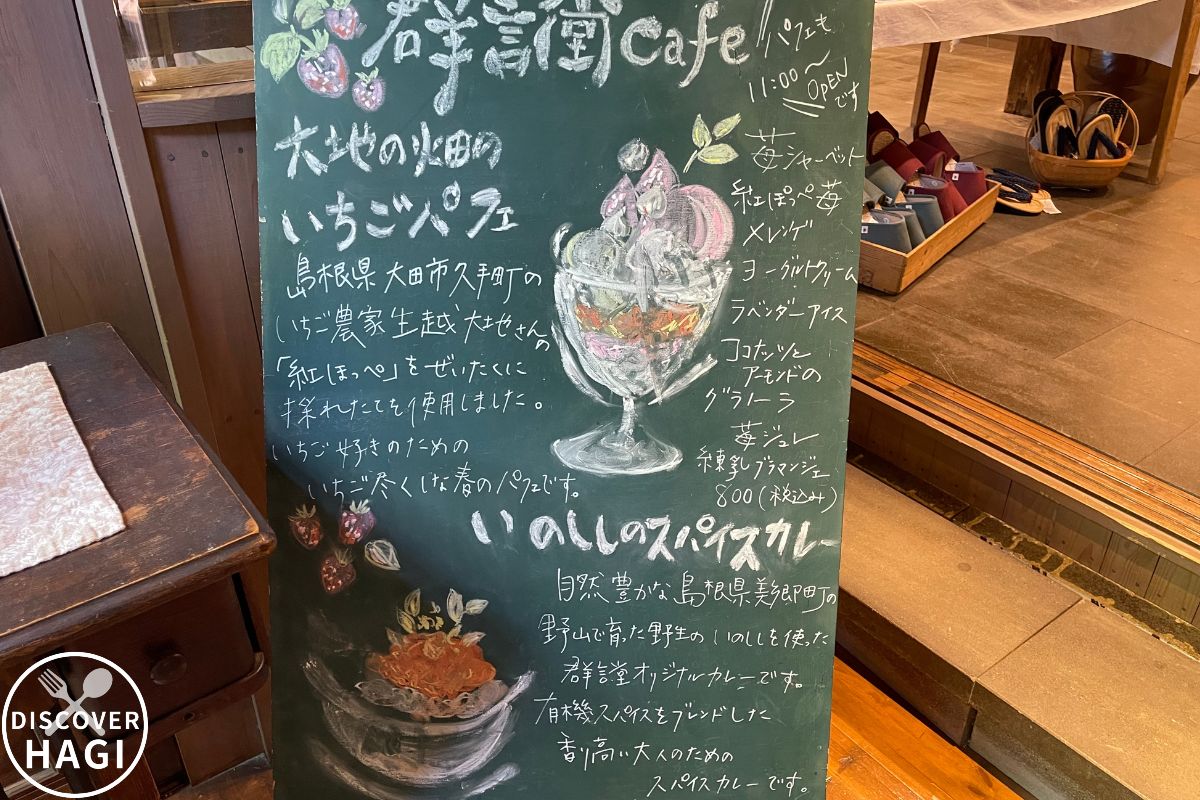 群言堂cafe
パフェも
11:00〜
OPEN
です
大地の畑の
いちごパフェ
島根県大田市久手町の
いちご農家生越大地さんの
「紅ほっぺ」をぜいたくに
採れたてを使用しました。
いちご好きのための
いちご尽くしな春のパフェです。
苺シャーベット
紅ほっぺ苺
メレンゲ
ヨーグルトクリーム
ラベンダーアイス
ココナッツと
アーモンドの
グラノーラ
苺ジュレ
練乳ブラマンジェ
800(税込み)
いのししのスパイスカレー
自然豊かな島根県美郷町の
野山で育った野生のいのししを使った
群言堂オリジナルカレーです。
有機スパイスをブレンドした
香り高い大人のための
スパイスカレーです。
DISCOVER
HAGI